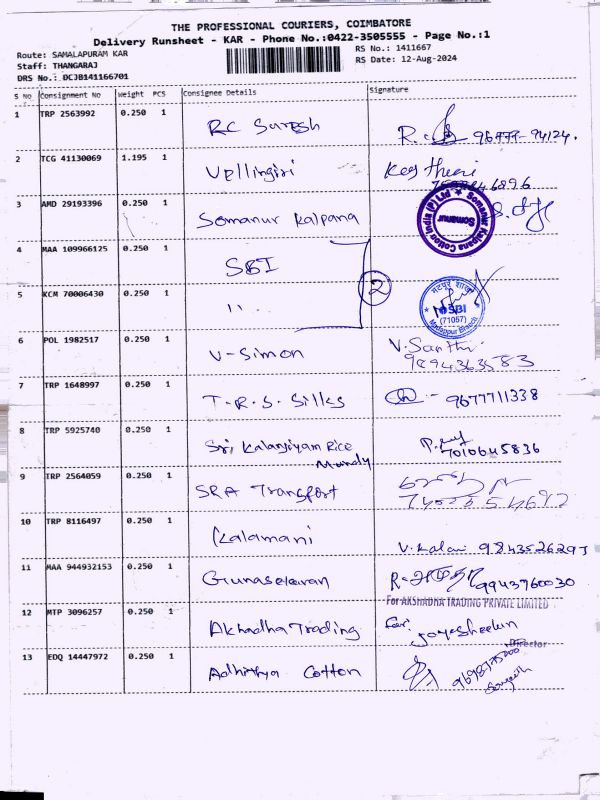 THE PROFESSIONAL COURIERS, COIMBATORE
Delivery Runsheet - KAR - Phone No.:0422-3505555 - Page No.:1
Route: SAMALAPURAM KAR
RS No.: 1411667
Staff: THANGARAJ
RS Date: 12-Aug-2024
DRS No.: DCJB141166701
S No Consignment No Weight PCS Consignee Details Signature
1 TRP 2563992 0.250 1 RC Suresh 96777-94124.
2 TCG 41130069 1.195 1 Vellingiri
3 AMD 29193396 0.250 1 Somanur Kalpana
Somanur Kalpana Cotton India (P) Ltd
Somanur
4 MAA 109966125 0.250 1 SBI
2
5 KCM 70006430 0.250 1 "
SBI
(71057)
6 POL 1982517 0.250 1 V-Simon V.Santhi
9894363583
7 TRP 1648997 0.250 1 T.R.S. Silks 9677711338
8 TRP 5925740 0.250 1 Sri, Kalanjiyam Rice
Mundy
7010645836
9 TRP 2564059 0.250 1 SRA Transport
10 TRP 8116497 0.250 1 Kalamani V. Kalai
11 MAA 944932153 0.250 1 Gunasekaran 9943760030
For AKSHADHA TRADING PRIVATE LIMITED
12 MTP 3096257 0.250 1 Akhadha Trading for.
Director
13 EDQ 14447972 0.250 1 Adhithya Cotton